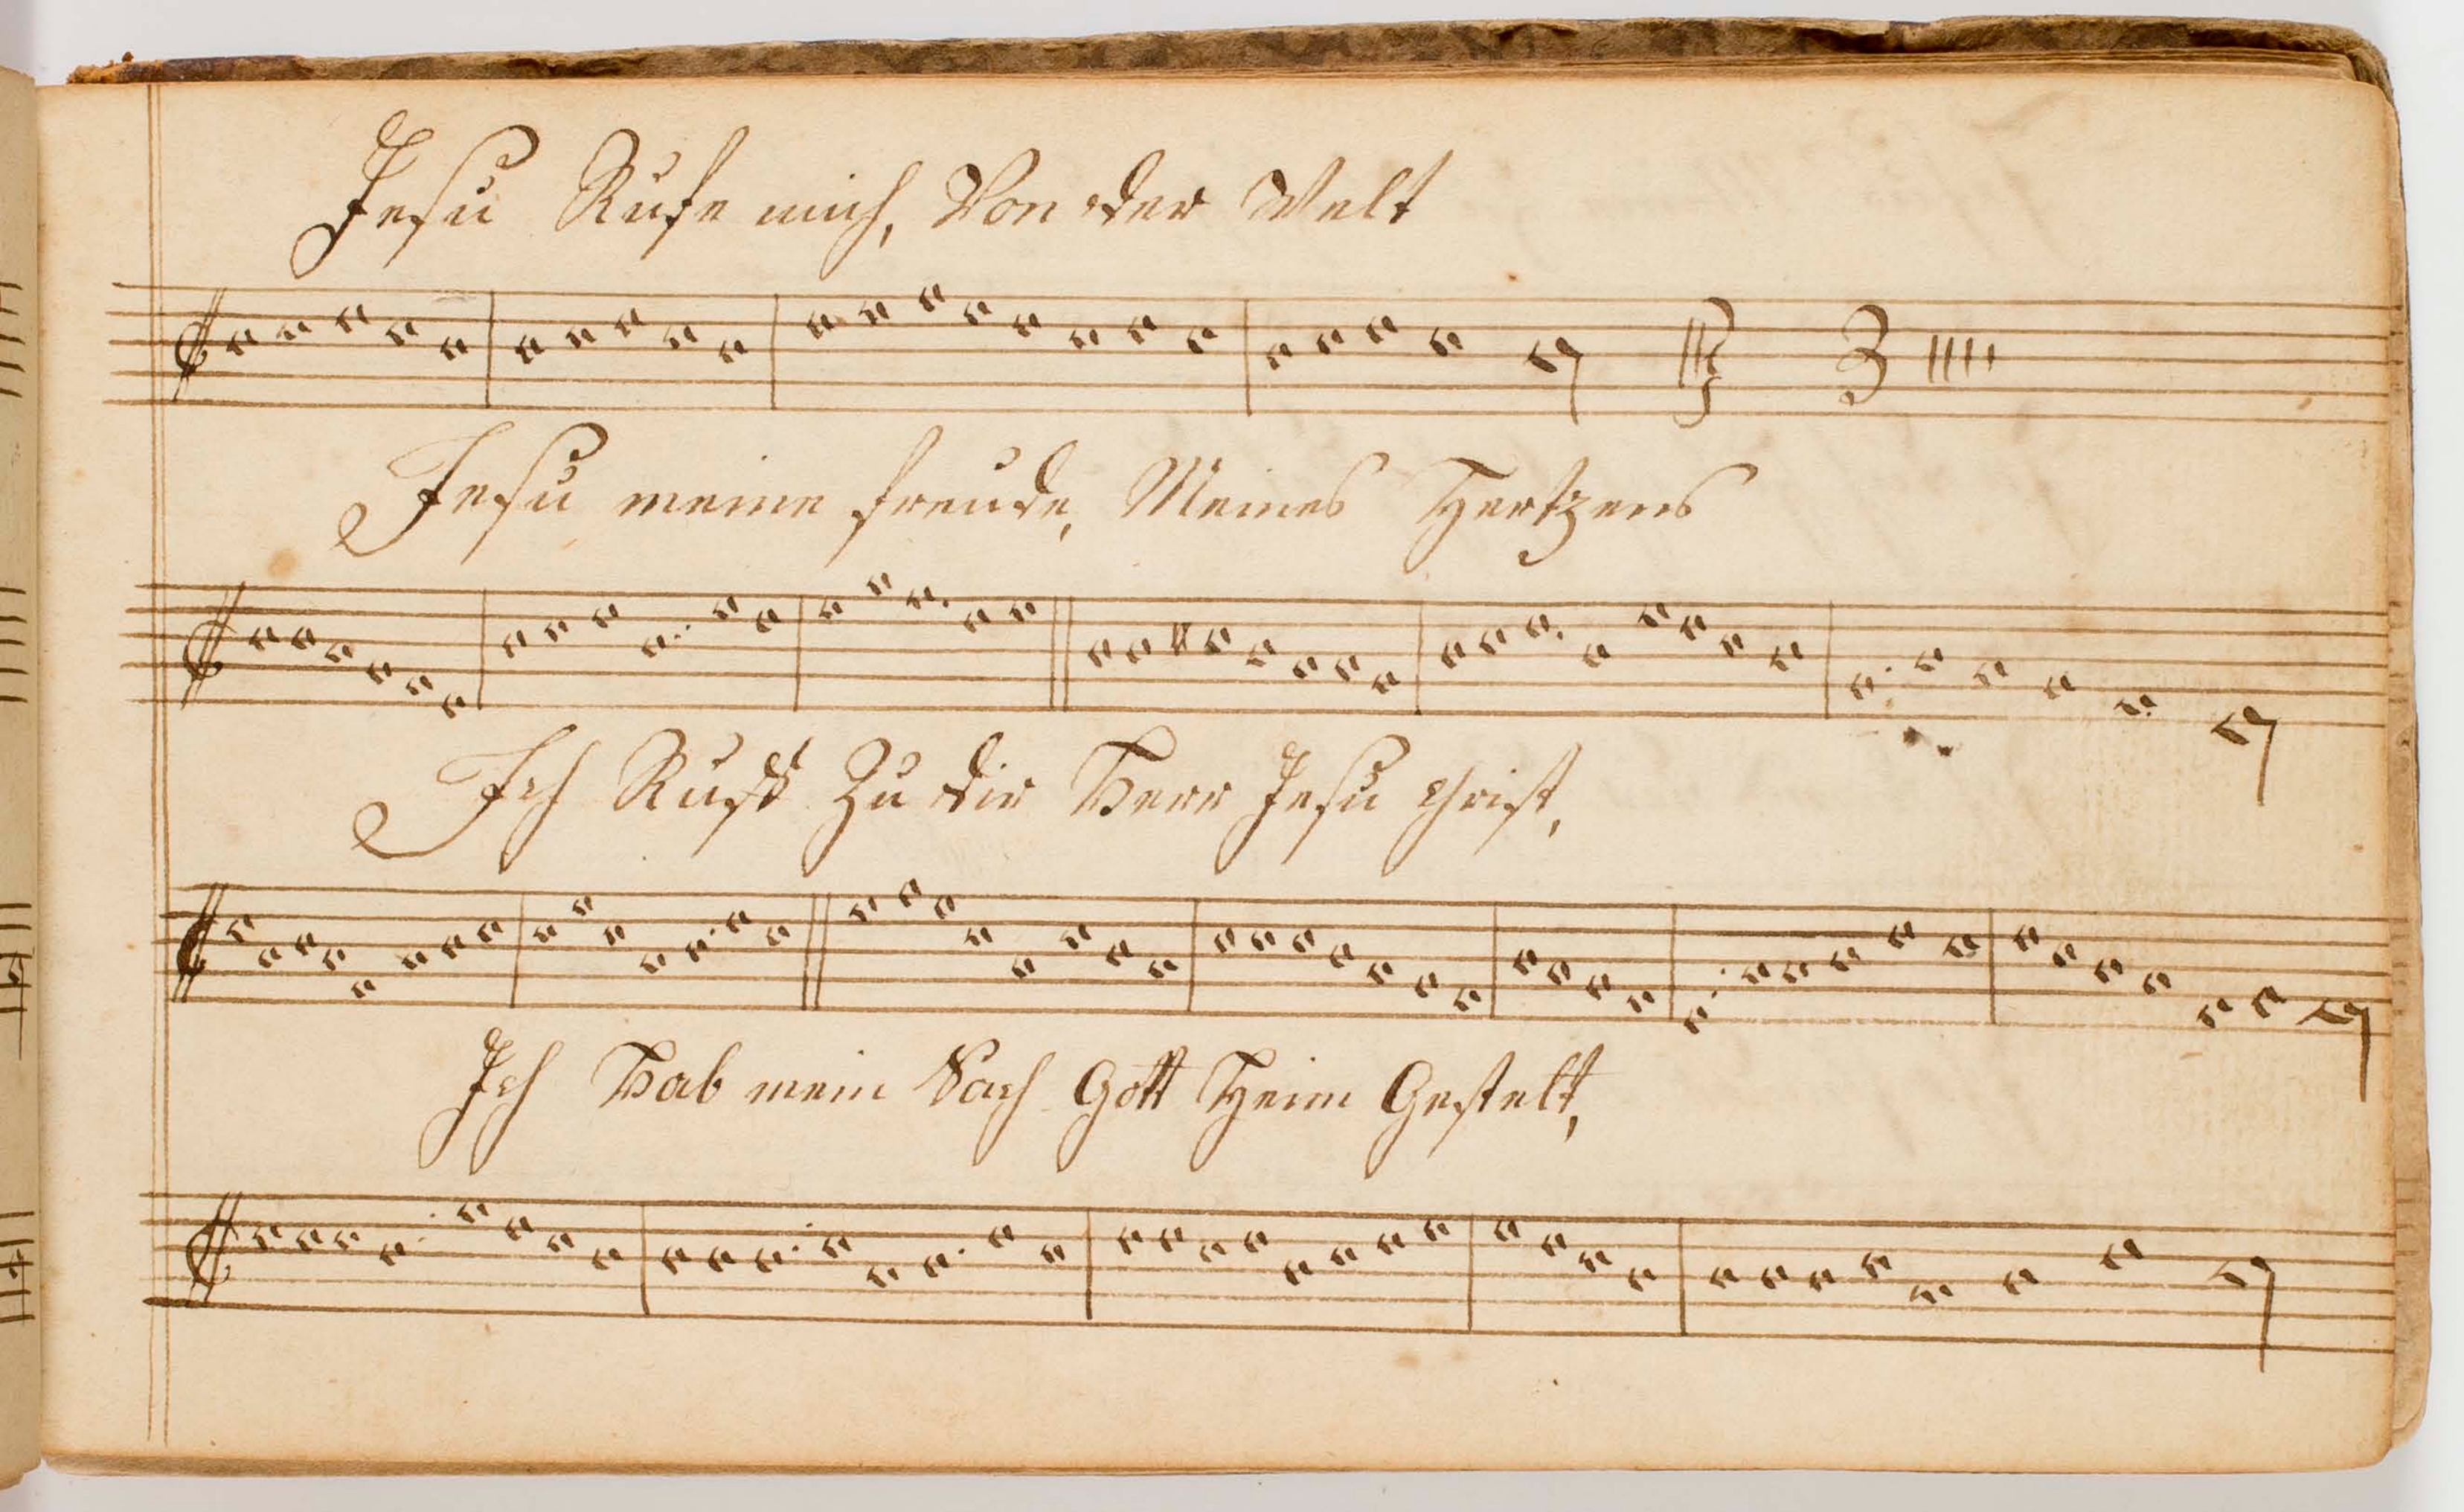 Jesu Rufe mich, Von der Welt
Jesu meine freude, Meines Hertzens
Ich Ruff Zu dir Herr Jesu Christ,
Ich Hab mein Sach Gott Heim Gestelt,